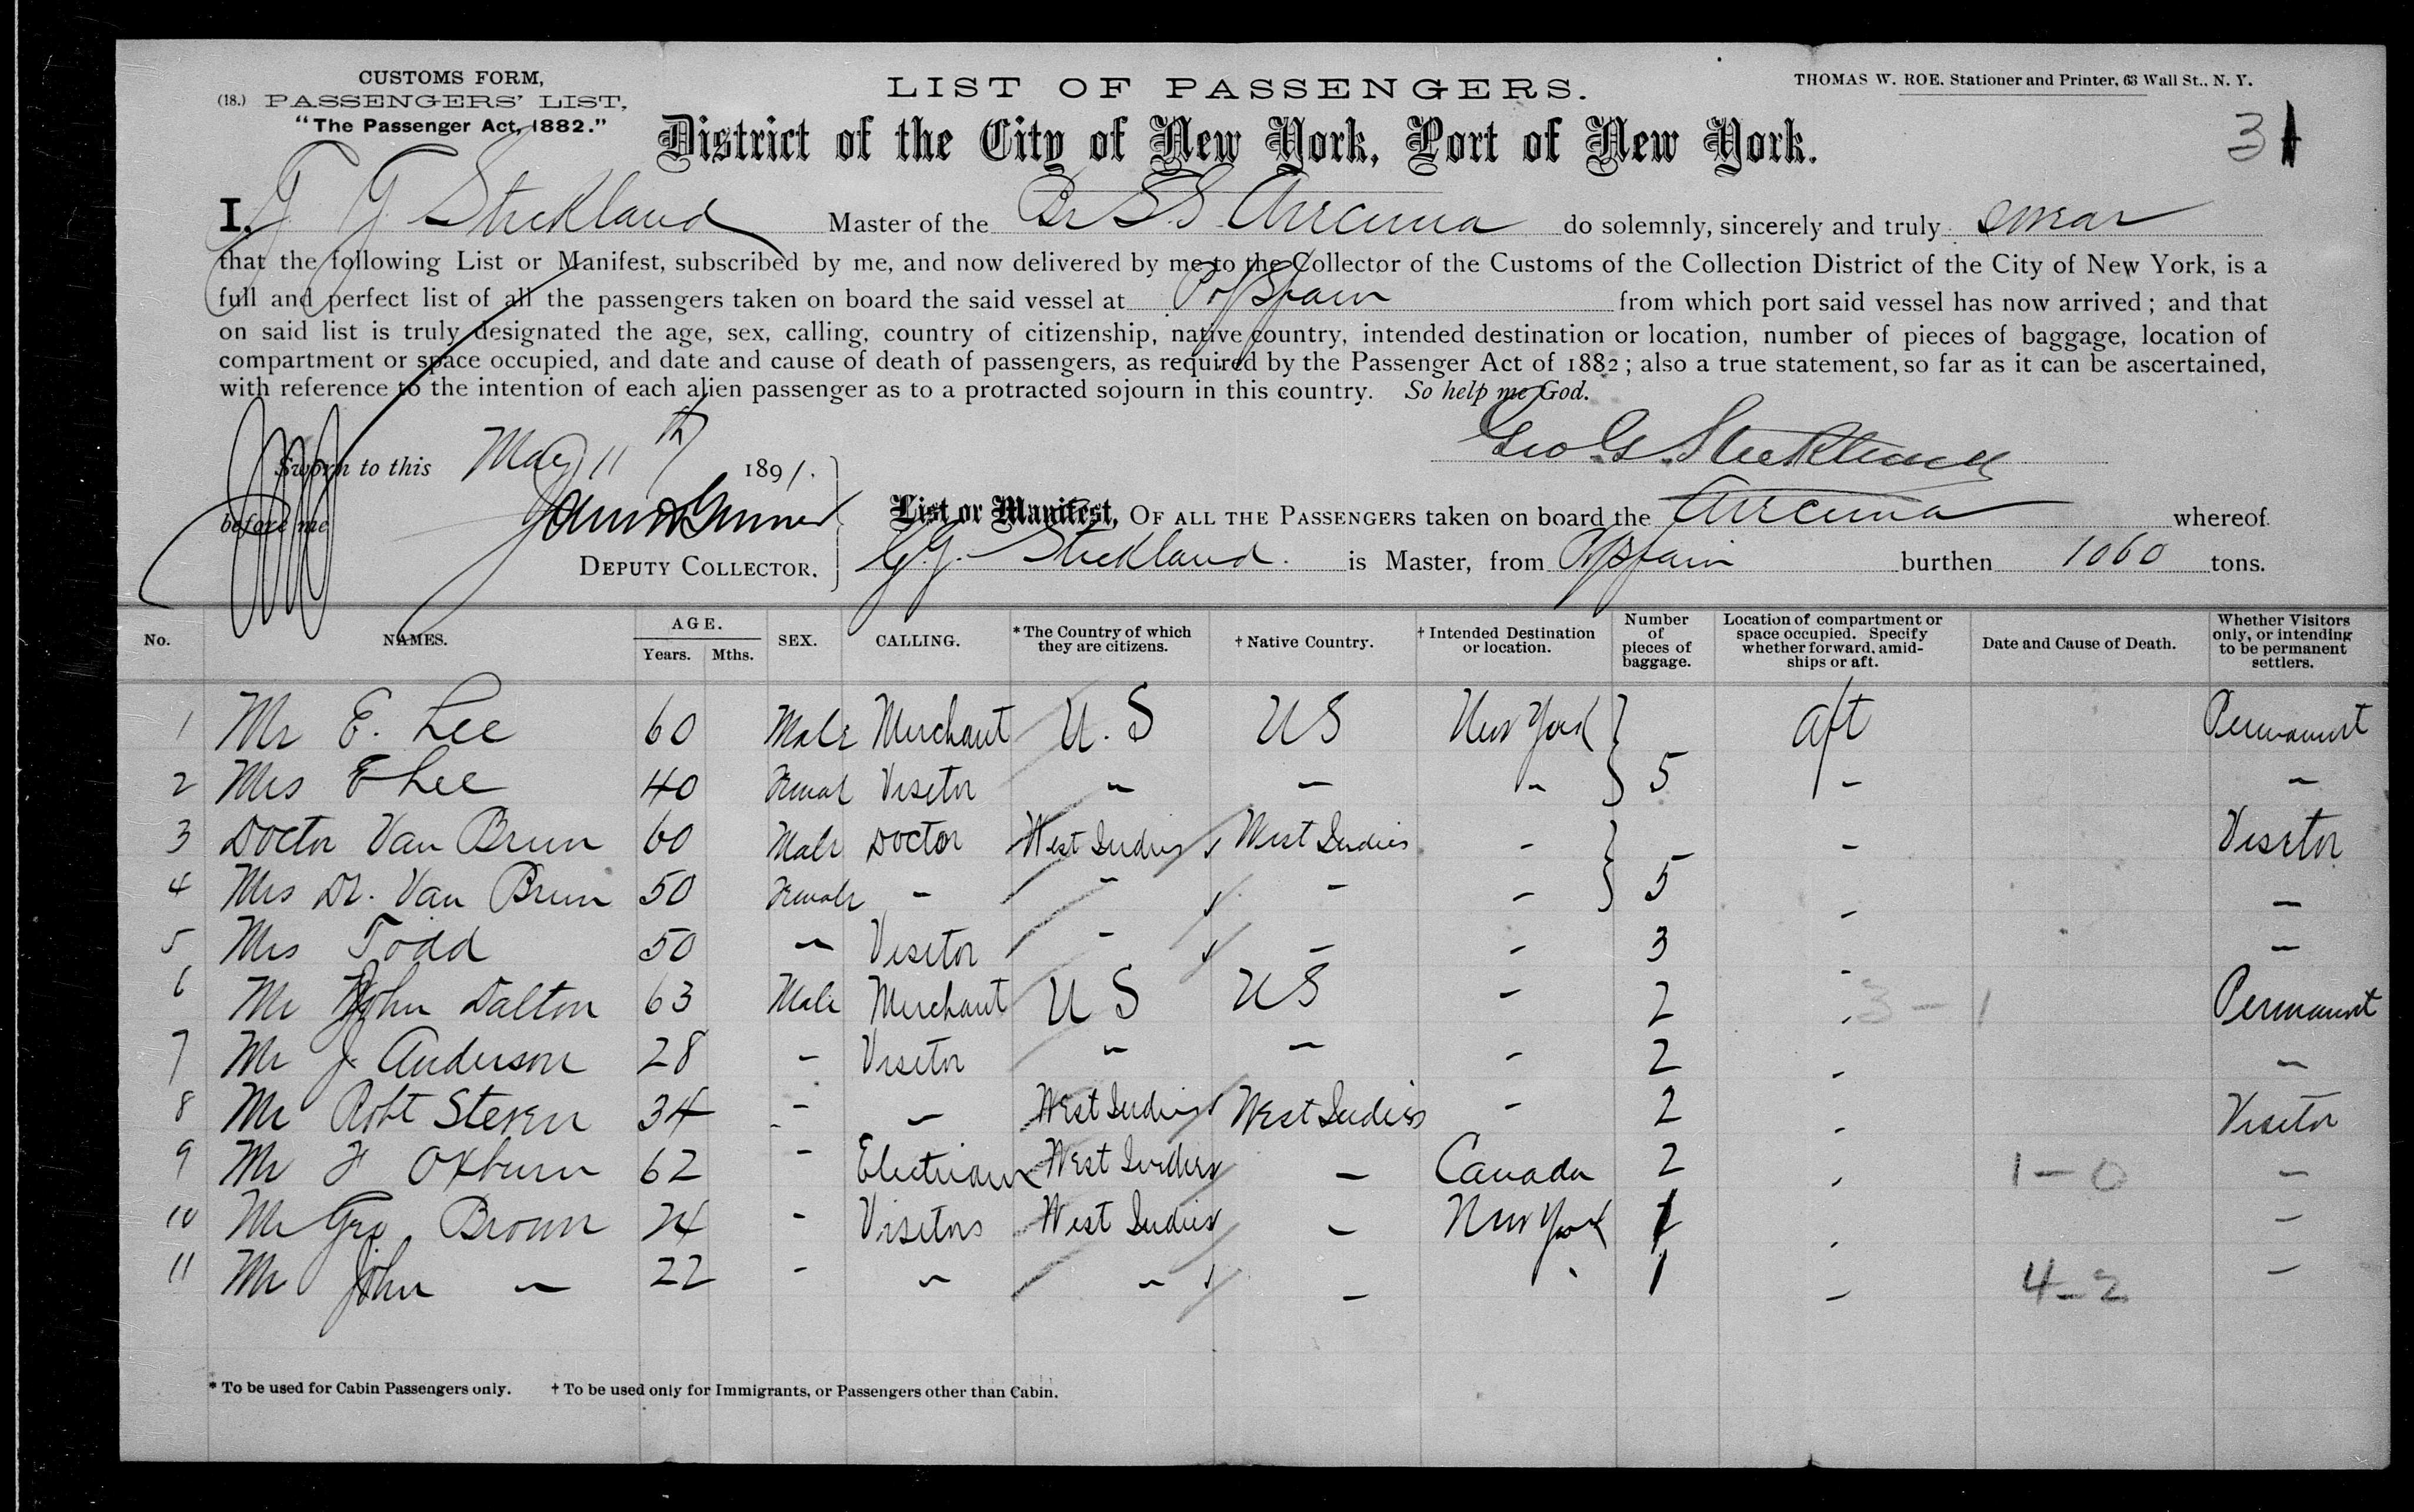 CUSTOMS FORM,
(18.) PASSENGERS' LIST,
"The Passenger Act, 1882."
LIST OF PASSENGERS.
THOMAS W. ROE. Stationer and Printer, 63 Wall St., N. Y.
District of the City of New York, Port of New York.
3
I, G G. Strickland Master of the Br S.S. do solemnly, sincerely and truly swear
that the following List or Manifest, subscribed by me, and now delivered by me to the Collector of the Customs of the Collection District of the City of New York, is a
full and perfect list of all the passengers taken on board the said vessel at PofSpain from which port said vessel has now arrived; and that
on said list is truly designated the age, sex, calling, country of citizenship, native country, intended destination or location, number of pieces of baggage, location of
compartment or space occupied, and date and cause of death of passengers, as required by the Passenger Act of 1882; also a true statement, so far as it can be ascertained,
with reference to the intention of each alien passenger as to a protracted sojourn in this country. So help me God.
Geo. G. Strickland
Sworn to this May 11th 1891.
before me
DEPUTY COLLECTOR.
List or Manifest, OF ALL THE PASSENGERS taken on board the whereof
G. G. Strickland. is Master, from PofSpain burthen 1060 tons.
No. NAMES. AGE. Years. Mths. SEX. CALLING. *The Country of which they are citizens. †Native Country. †Intended Destination or location. Number of pieces of baggage. Location of compartment or space occupied. Specify whether forward, amidships or aft. Date and Cause of Death. Whether Visitors only, or intending to be permanent settlers.
1 Mr E. Lee 60 Male Merchant U.S US New York aft Permanent
2 Mrs E Lee 40 Femal Visitor - - - 5 - -
3 Doctor Van Brun 60 Male Doctor West Indies West Indies - - Visitor
4 Mrs Dr. Van Brun 50 Female - - - - 5 - -
5 Mrs Todd 50 - Visitor - - - 3 - -
6 Mr John Dalton 63 Male Merchant US US - 2 - 3-1 Permanent
7 Mr J. Anderson 28 - Visitor - - - 2 - -
8 Mr Robt Steven 34 - - West Indies West Indies - 2 - Visitor
9 Mr F Oxburn 62 - Electrian West Indies - Canada 2 - 1-0 -
10 Mr Geo Brown 24 - Visitors West Indies - New York 1 - -
11 Mr John - 22 - - - - - 1 - 4-2 -
* To be used for Cabin Passengers only. † To be used only for Immigrants, or Passengers other than Cabin.